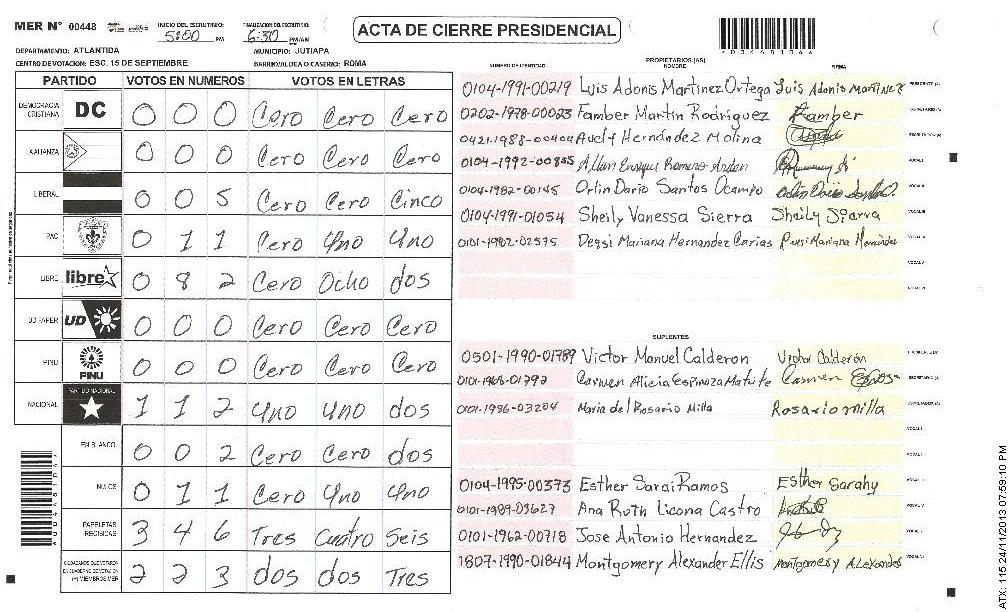 MER N° 00448 INICIO DEL ESCRUTINIO: 5:00 PM FINALIZACION DEL ESCRUTINIO: 6:30 PM/AM
ACTA DE CIERRE PRESIDENCIAL
DEPARTAMENTO: ATLANTIDA MUNICIPIO: JUTIAPA
CENTRO DE VOTACION: ESC. 15 DE SEPTIEMBRE BARRIO/ALDEA O CASERIO: ROMA
PARTIDO VOTOS EN NUMEROS VOTOS EN LETRAS
DEMOCRACIA CRISTIANA DC 0 0 0 Cero Cero Cero
AALIANZA 0 0 0 Cero Cero Cero
LIBERAL 0 0 5 Cero Cero Cinco
PAC 0 1 1 Cero Uno Uno
LIBRE libre 0 8 2 Cero Ocho dos
UD FAPER UD 0 0 0 Cero Cero Cero
PINU PINU 0 0 0 Cero Cero Cero
NACIONAL PARTIDO NACIONAL 1 1 2 Uno Uno dos
EN BLANCO 0 0 2 Cero Cero dos
NULOS 0 1 1 Cero Uno Uno
PAPELETAS RECIBIDAS 3 4 6 Tres Cuatro Seis
CIUDADANOS QUE VOTARON EN CUADERNO DE VOTACION (+) MIEMBROS MER 2 2 3 dos dos Tres
PROPIETARIOS (AS)
NUMERO DE IDENTIDAD NOMBRE FIRMA
0104-1991-00219 Luis Adonis Martinez Ortega Luis Adonis Martinez PRESIDENTE (A)
0202-1978-00023 Famber Martin Rodriguez Famber SECRETARIO (A)
0421-1988-00404 Avely Hernández Molina ESCRUTADOR (A)
0104-1992-00855 Allan Enrique Romero VOCAL I
0104-1982-00145 Orlin Dario Santos Ocampo VOCAL II
0104-1991-01054 Sheily Vanessa Sierra Sheily Sierra VOCAL III
0101-1982-02575 Deysi Mariana Hernandez Carias Deysi Mariana Hernández VOCAL IV
VOCAL V
VOCAL VI
SUPLENTES
0501-1990-01789 Victor Manuel Calderon Victor Calderón PRESIDENTE (A)
0101-1968-01792 Carmen Alicia Espinoza Matute Carmen SECRETARIO (A)
0101-1996-03204 Maria del Rosario Milla Rosario milla ESCRUTADOR (A)
VOCAL I
VOCAL II
0104-1995-00373 Esther Sarai Ramos Esther Sarahy VOCAL III
0101-1989-03627 Ana Ruth Licona Castro VOCAL IV
0101-1962-00718 Jose Antonio Hernandez VOCAL V
1807-1990-01844 Montgomery Alexander Ellis Montgomery Alexander VOCAL VI
ATX: 115 24/11/2013 07:59:10 PM